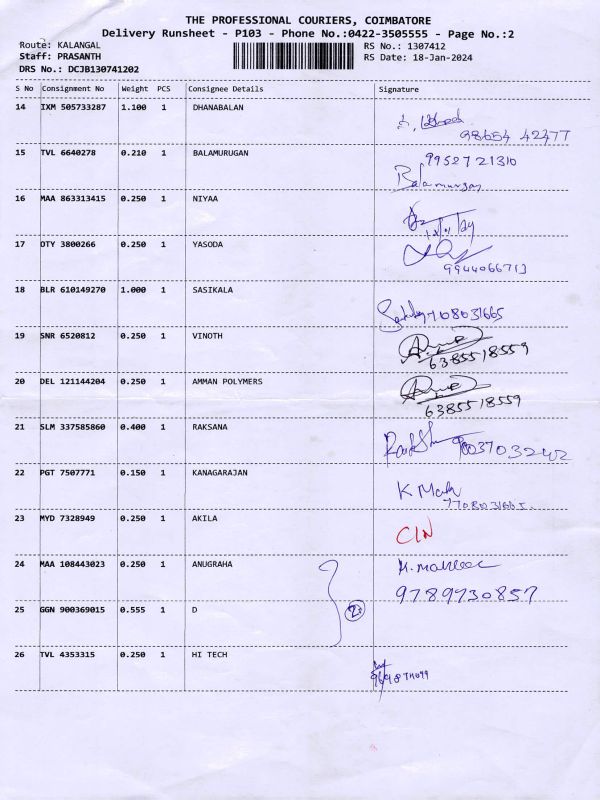 THE PROFESSIONAL COURIERS, COIMBATORE
Delivery Runsheet - P103 - Phone No.:0422-3505555 - Page No.:2
Route: KALANGAL
RS No.: 1307412
Staff: PRASANTH
RS Date: 18-Jan-2024
DRS No.: DCJB130741202
S No Consignment No Weight PCS Consignee Details Signature
14 IXM 505733287 1.100 1 DHANABALAN
98654 42477
15 TVL 6640278 0.210 1 BALAMURUGAN 9952721310
Balamurugan
16 MAA 863313415 0.250 1 NIYAA
17 OTY 3800266 0.250 1 YASODA
9944066713
18 BLR 610149270 1.000 1 SASIKALA
19 SNR 6520812 0.250 1 VINOTH
6385518559
20 DEL 121144204 0.250 1 AMMAN POLYMERS
6385518559
21 SLM 337585860 0.400 1 RAKSANA
22 PGT 7507771 0.150 1 KANAGARAJAN
23 MYD 7328949 0.250 1 AKILA
24 MAA 108443023 0.250 1 ANUGRAHA
9789730857
25 GGN 900369015 0.555 1 D
26 TVL 4353315 0.250 1 HI TECH